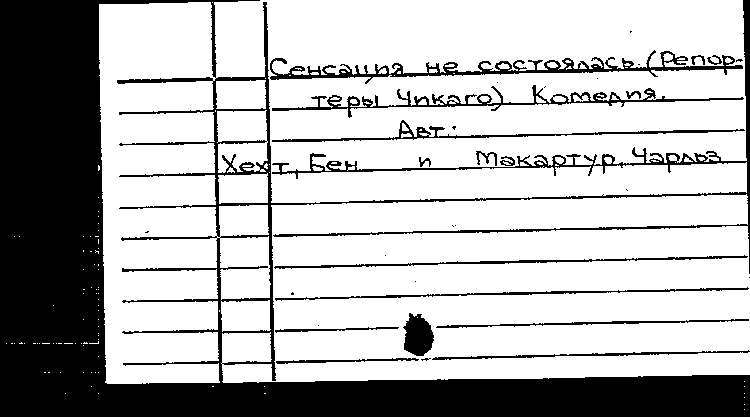 Сенсация не состоялась (Репор-
теры Чикаго) Комедия.
Авт:
Хехт, Бен и Макартур, Чарльз